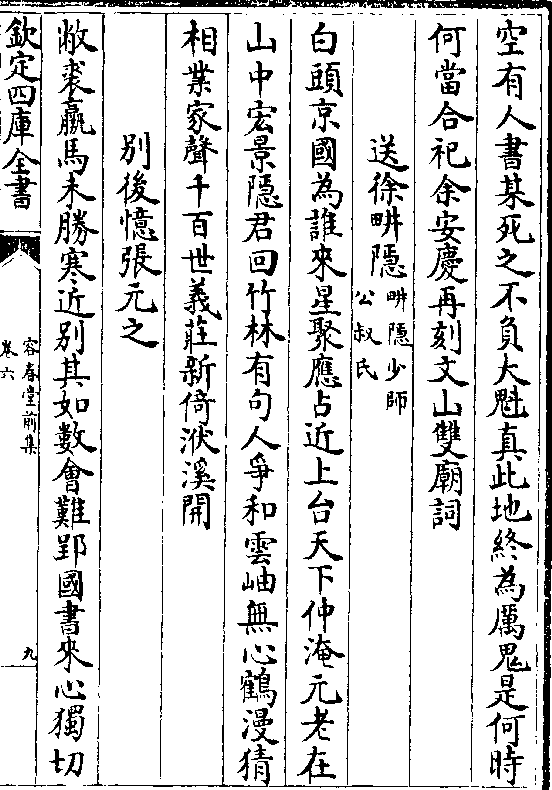 空有人書某死之不負大魁真此地終為厲鬼是何時
何當合祀余安慶再刻文山雙廟詞
送徐畊隠畊隠少師
公叔氏
白頭京國為誰來星聚應占近上台天下仲淹元老在
山中宏景隠君回竹林有句人爭和雲岫無心鶴漫猜
相業家聲千百世義莊新倚洑溪開
別後憶張元之
敝裘羸馬未勝寒近別其如數會難郢國書來心獨切
欽定四庫全書
容春堂前集
卷六
九